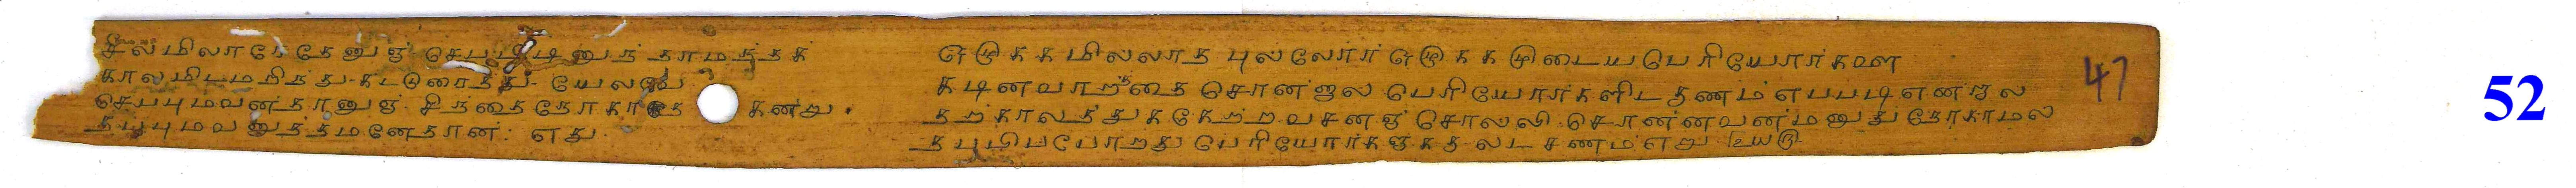 சீலமிலாதே தேனுஞ் செப்பிடினுந் தாமந்தக்
காலமிடமறிந்து கட்டுரைத்து யேலவே
செப்புமவன்தானுஞ் சிந்தை நோகாதே கண்று
தப்புமவனுத்தமனேதான்: எது
ஒழுக்கமில்லாத புல்லோர் ஒழுக்கமுடைய பெரியோர்களை
கடினவார்த்தை சொன்னால் பெரியோர்களிடகுணம் எப்படி என்றால்
தற்காலத்துக்கேற்ற வசனஞ் சொல்லி சொன்னவன்மனுது நோகாமல்
தப்பிப்போறது பெரியோர்களுக்கு லட்சணம் எறு
47
52